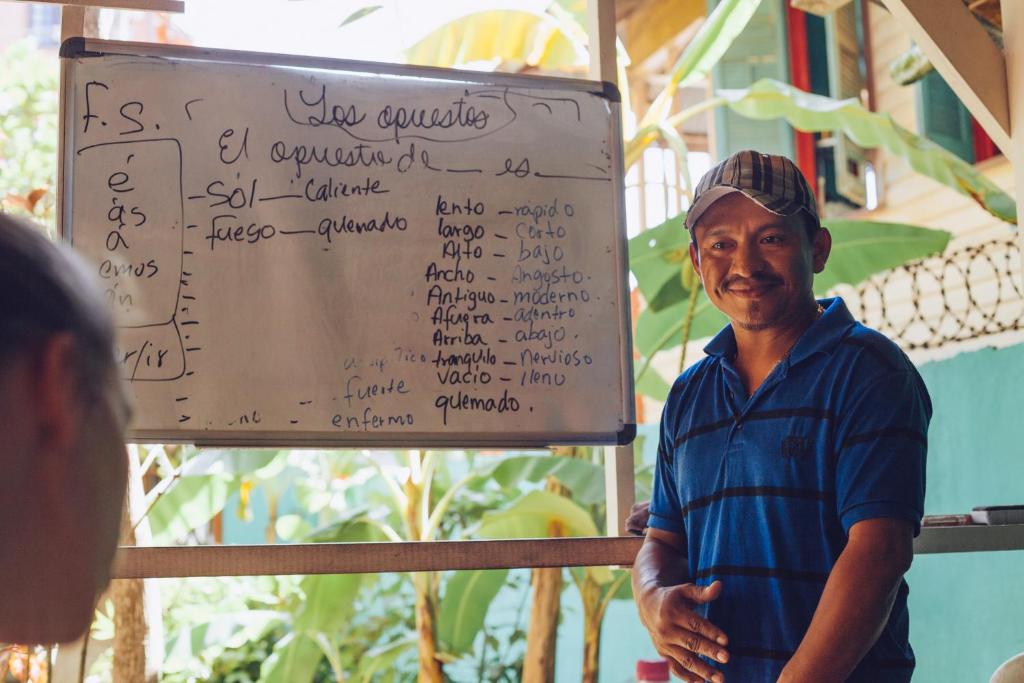 F.S.
Los opuestos
El opuesto de __ es ___
é
ás
a
emos
- Sol — Caliente
fuego — quemado
lento - rápido
largo - corto
Alto - bajo
Ancho - Angosto.
Antiguo - moderno.
Afuera - adentro
Arriba - abajo.
tranquilo - nervioso
vacio - llenu
quemado.
fuerte
enfermo